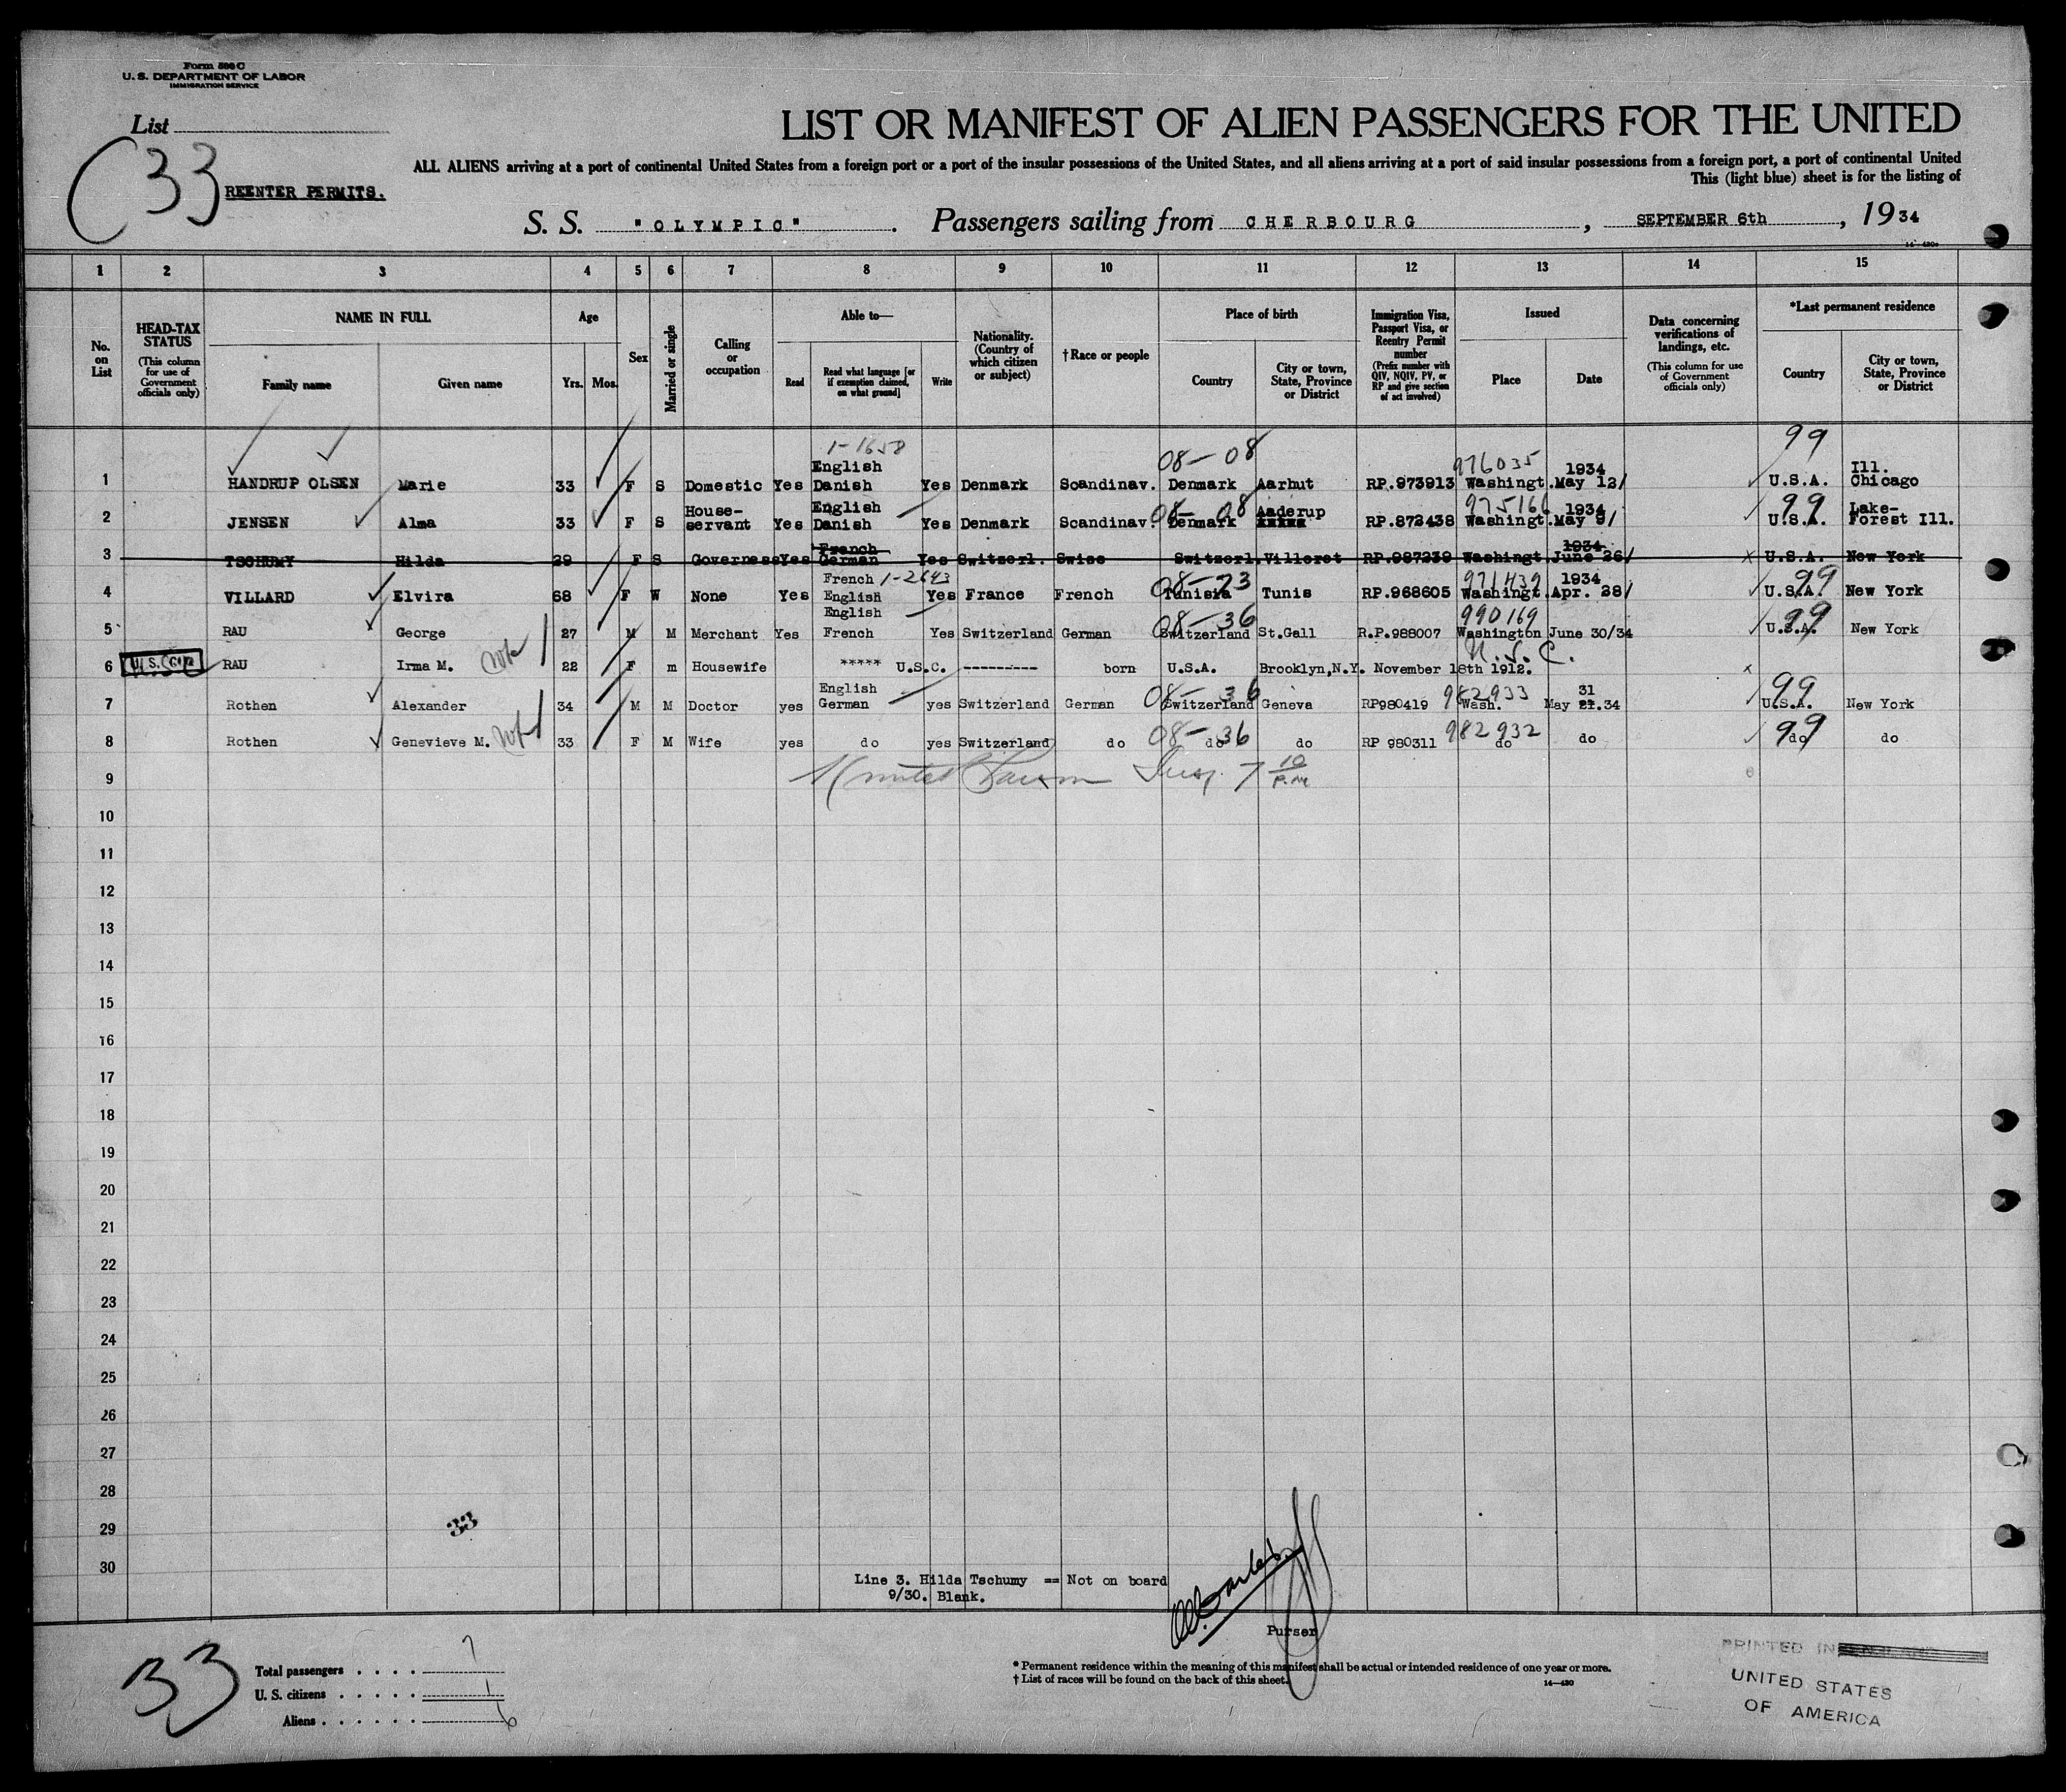 Form 500 C
U. S. DEPARTMENT OF LABOR
IMMIGRATION SERVICE
List
33
REENTER PERMITS.
LIST OR MANIFEST OF ALIEN PASSENGERS FOR THE UNITED
ALL ALIENS arriving at a port of continental United States from a foreign port or a port of the insular possessions of the United States, and all aliens arriving at a port of said insular possessions from a foreign port, a port of continental United
This (light blue) sheet is for the listing of
S. S. "OLYMPIC". Passengers sailing from CHERBOURG, SEPTEMBER 6th, 1934
1 2 3 4 5 6 7 8 9 10 11 12 13 14 15
No. on List
HEAD-TAX STATUS (This column for use of Government officials only)
NAME IN FULL Family name Given name
Age Yrs. Mos.
Sex
Married or single
Calling or occupation
Able to— Read Read what language [or if exemption claimed, on what ground] Write
Nationality. (Country of which citizen or subject)
†Race or people
Place of birth Country City or town, State, Province or District
Immigration Visa, Passport Visa, or Reentry Permit number (Prefix number with QIV, NQIV, PV, or RP and give section of act involved)
Issued Place Date
Data concerning verifications of landings, etc. (This column for use of Government officials only)
*Last permanent residence Country City or town, State, Province or District
1-1658 08-08 976035 99
1 HANDRUP OLSEN Marie 33 F S Domestic Yes English Danish Yes Denmark Scandinav. Denmark Aarhut RP.973913 Washingt. 1934 May 12/ U.S.A. Ill. Chicago
08-08 975166 99
2 JENSEN Alma 33 F S House-servant Yes English Danish Yes Denmark Scandinav. Denmark Aaderup RP.872438 Washingt. 1934 May 9/ U.S.A. Lake-Forest Ill.
3 TSCHUMY Hilda 29 F S Governess Yes French German Yes Switzerl. Swiss Switzerl. Villeret RP.987239 Washingt. 1934 June 26/ x U.S.A. New York
1-2643 08-23 971439 99
4 VILLARD Elvira 68 F W None Yes French English Yes France French Tunisia Tunis RP.968605 Washingt. 1934 Apr. 28/ U.S.A. New York
08-36 990169 99
5 RAU George 27 M M Merchant Yes English French Yes Switzerland German Switzerland St.Gall R.P.988007 Washington June 30/34 U.S.A. New York
U.S.C.
6 RAU Irma M. 22 F m Housewife ***** U.S.C. --------- born U.S.A. Brooklyn,N.Y. November 18th 1912. x
08-36 982933 99
7 Rothen Alexander 34 M M Doctor yes English German yes Switzerland German Switzerland Geneva RP980419 Wash. May 31 21.34 U.S.A. New York
08-36 982932 99
8 Rothen Genevieve M. 33 F M Wife yes do yes Switzerland do do do RP 980311 do do do do
9
10
11
12
13
14
15
16
17
18
19
20
21
22
23
24
25
26
27
28
29
30
33
Line 3. Hilda Tschumy == Not on board
9/30. Blank.
Purser
33
Total passengers . . . . 7
U. S. citizens . . . . . 1
Aliens . . . . . . 6
* Permanent residence within the meaning of this manifest shall be actual or intended residence of one year or more.
† List of races will be found on the back of this sheet.
14—430
PRINTED IN
UNITED STATES
OF AMERICA